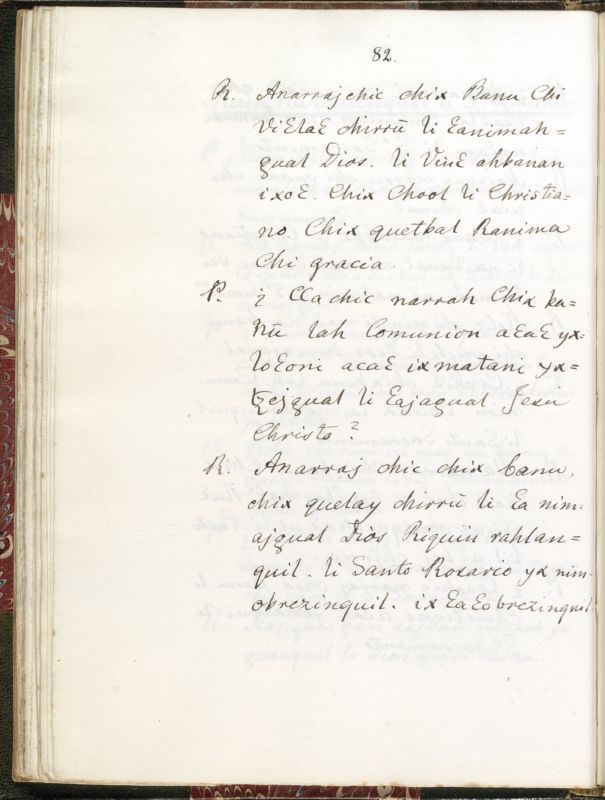 82.
R. Anarrajchic chix Banu Chi
ViƐtaƐ chirrū li Ɛanimah=
gual Dios. li VinƐ ahbanan
ixoƐ. Chix Chool li Christia=
no. Chix quetbal Ranima
Chi gracia.
P. ¿ Cla chic narrah Chix ka=
nū lah Comunion aƐaƐ yx=
loƐoni acaƐ ixmatani yx=
tzejgual li Ɛajagual Jesu
Christo?
R. Anarraj chic chix banu,
chix quelay chirrū li Ɛa nim=
ajgual Diòs Riquin rahlan=
quil. li Santo Rosario yx nim
obrezinquil. ix ƐaƐobrezinquil